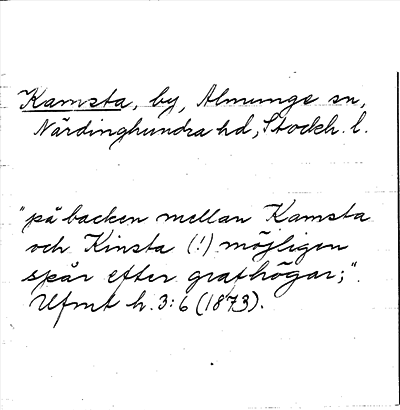 Kamsta, by, Almunge sn,
Närdinghundra hd, Stockh. l.
"på backen mellan Kamsta
och Kinsta (!) möjligen
spår efter grafhögar;".
Ufmt h. 3:6 (1873).